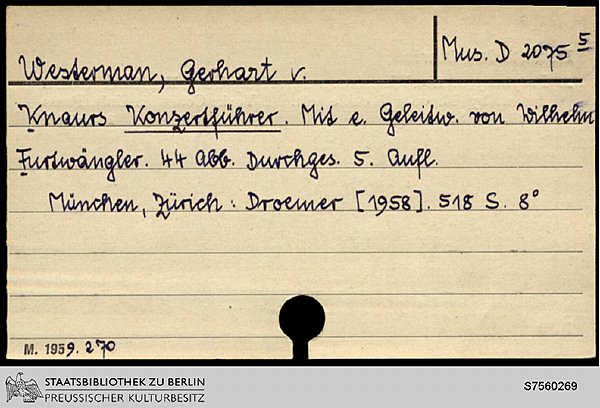 Westerman, Gerhart v.
Mus. D 2075 5
Knaurs Konzertführer. Mit e. Geleitw. von Wilhelm
Furtwängler. 44 Abb. Durchges. 5. Aufl.
München, Zürich: Droemer [1958]. 518 S. 8°
M. 1959. 270
STAATSBIBLIOTHEK ZU BERLIN
PREUSSISCHER KULTURBESITZ
S7560269